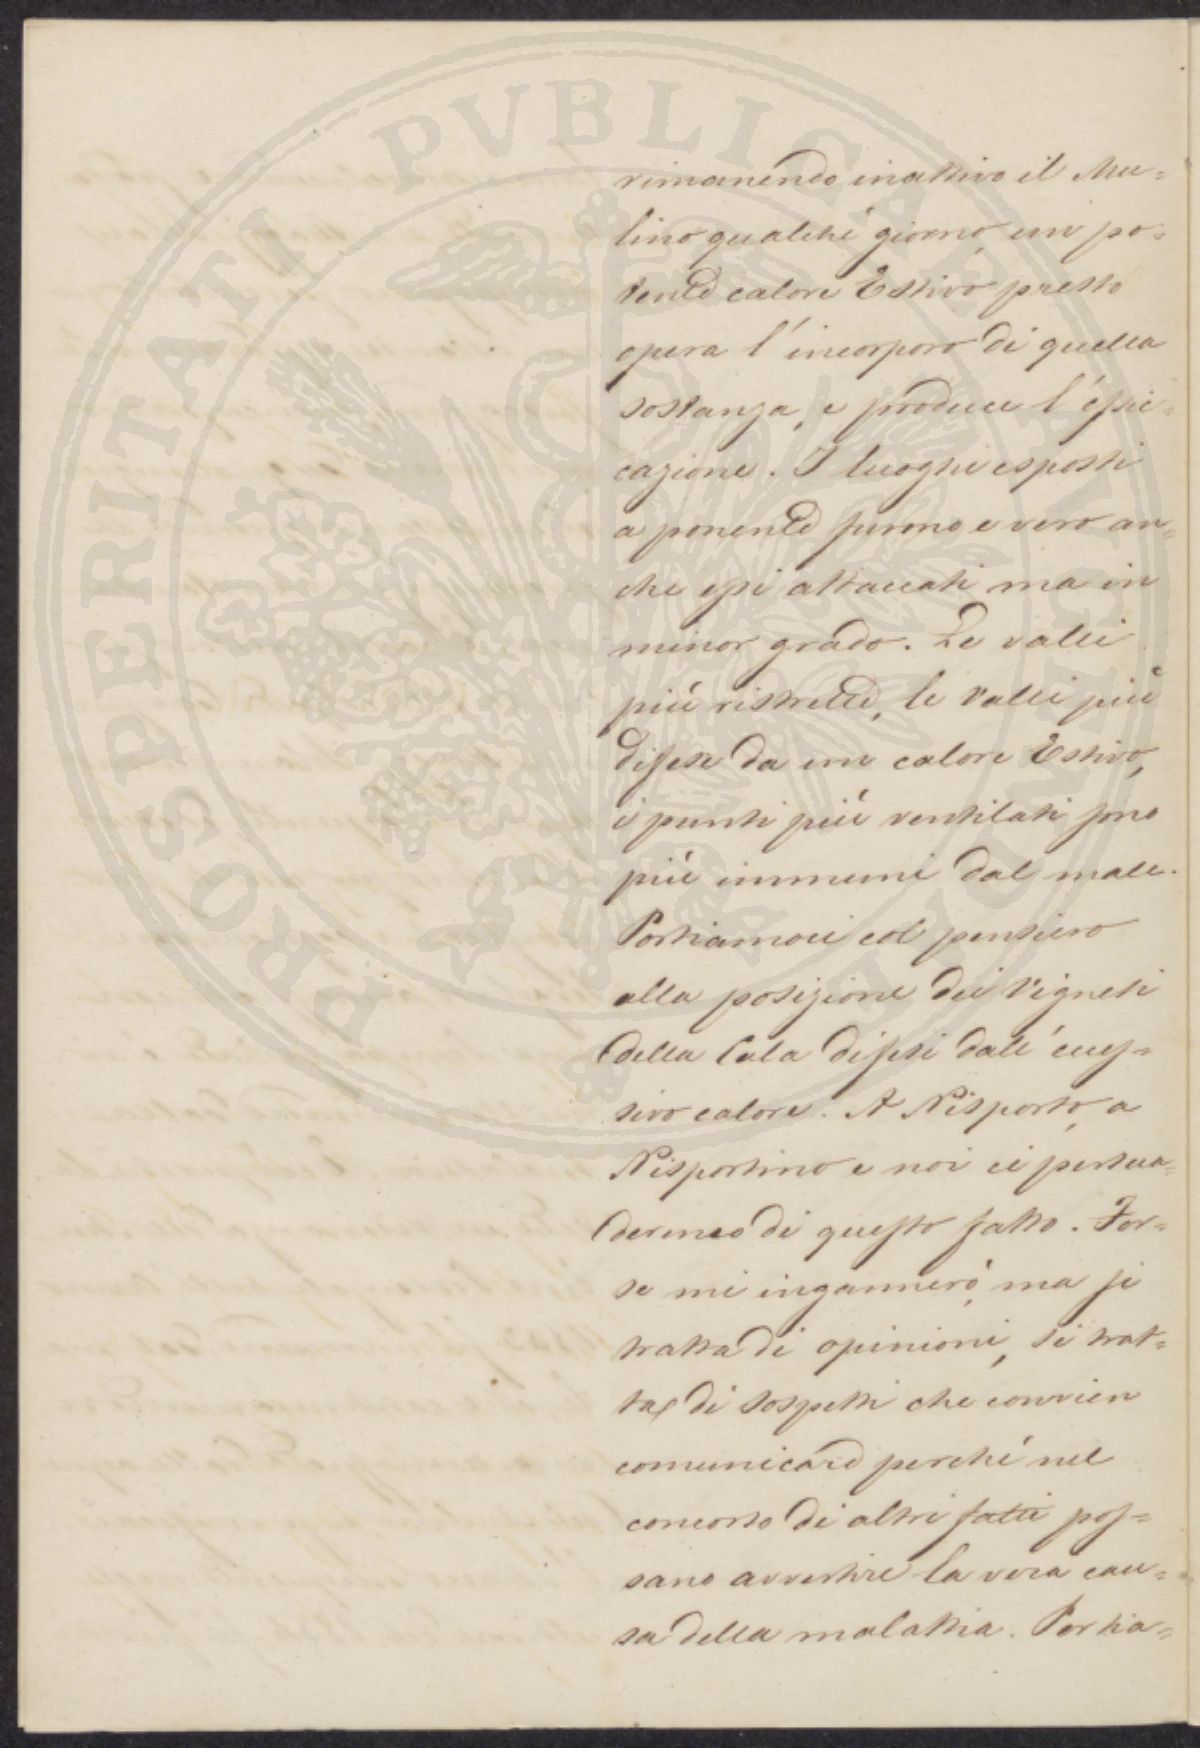 PROSPERITATI PVBLICAE AVGENDAE
rimanendo inattivo il Mu=
lino qualche giorno, un po=
tente calore Estivo presto
opera l'incorporo di quella
sostanza, e produce l'essic=
cazione. I luoghi esposti
a ponente furono e vero an=
che essi attaccati ma in
minor grado. Le valli
più ristrette, le Valli più
difese da un calore Estivo,
i punti più ventilati sono
più immuni dal male.
Portiamoci col pensiero
alla posizione dei Vigneti
della Cala difesi dall'ecces=
sivo calore. A Nisporto, a
Nisportino e noi ci persua=
deremo di questo fatto. For=
se mi ingannerò, ma si
tratta di opinioni, si trat=
ta di sospetti che convien
comunicare perché nel
concorso di altri fatti pos=
sano avvertire la vera cau=
sa della malattia. Portia=